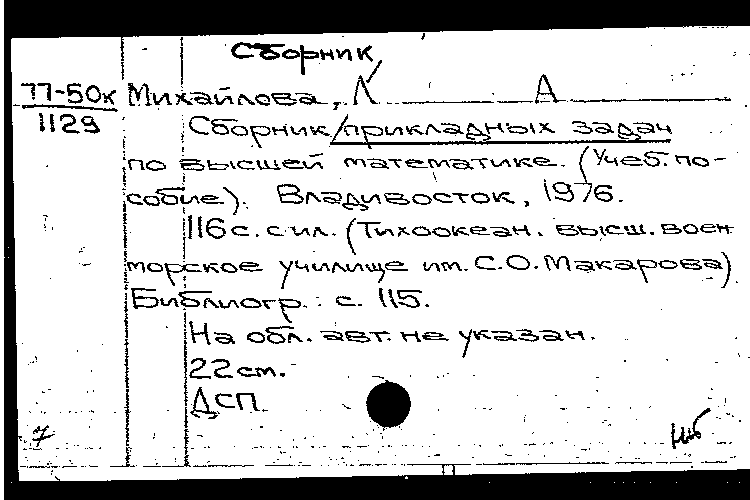 Сборник
77-50к Михайлова, Л А
1129 Сборник/прикладных задач
по высшей математике. (Учеб. по-
собие). Владивосток, 1976.
116 с. с ил. (Тихоокеан. высш. воен
морское училище им. С.О. Макарова)
Библиогр.: с. 115.
На обл. авт. не указан.
22 см.
ДСП.
7